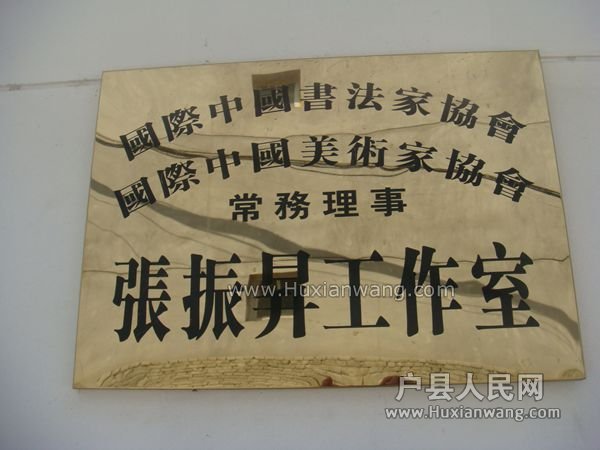 國際中國書法家協會
國際中國美術家協會
常務理事
張振昇工作室
www.Huxianwang.com
户县人民网
www.Huxianwang.com